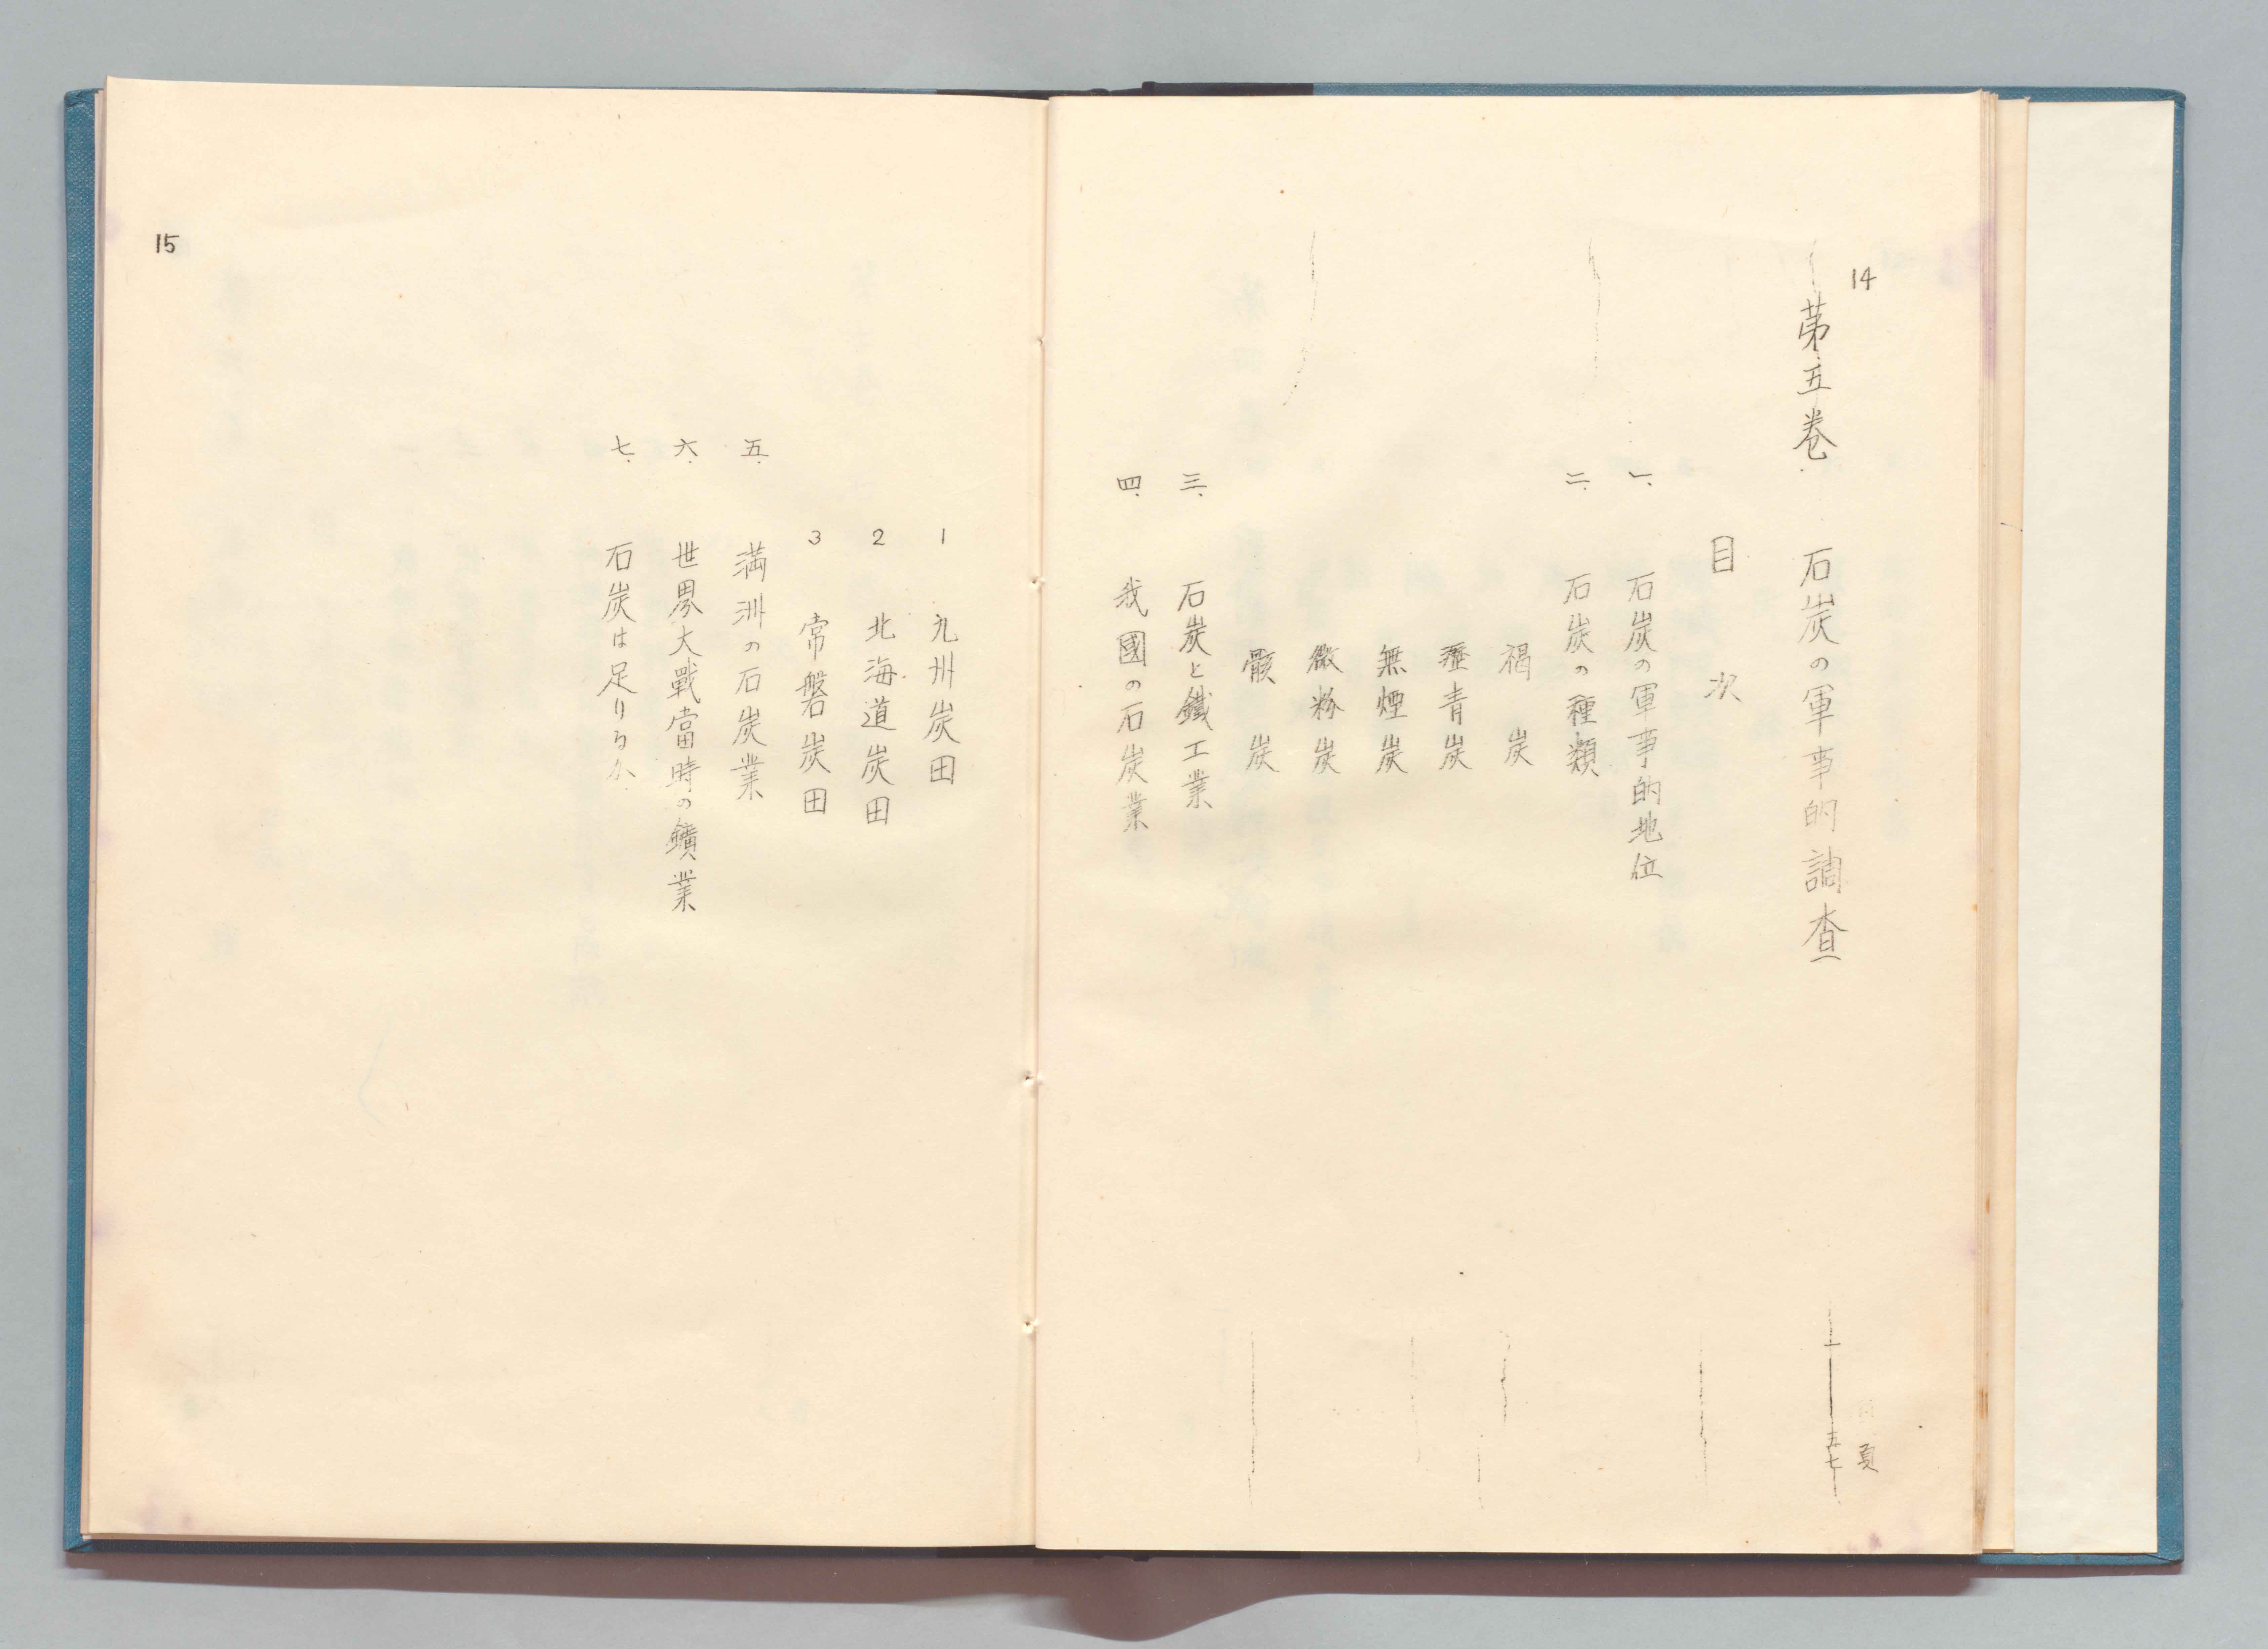 14
頁
第五巻 石炭の軍事的調査 一―五七
目次
一、石炭の軍事的地位
二、石炭の種類
褐炭
瀝青炭
無煙炭
微粉炭
骸炭
三、石炭と鐵工業
四、我國の石炭業
1 九州炭田
2 北海道炭田
3 常磐炭田
五、満洲の石炭業
六、世界大戰當時の鑛業
七、石炭は足りるか
15